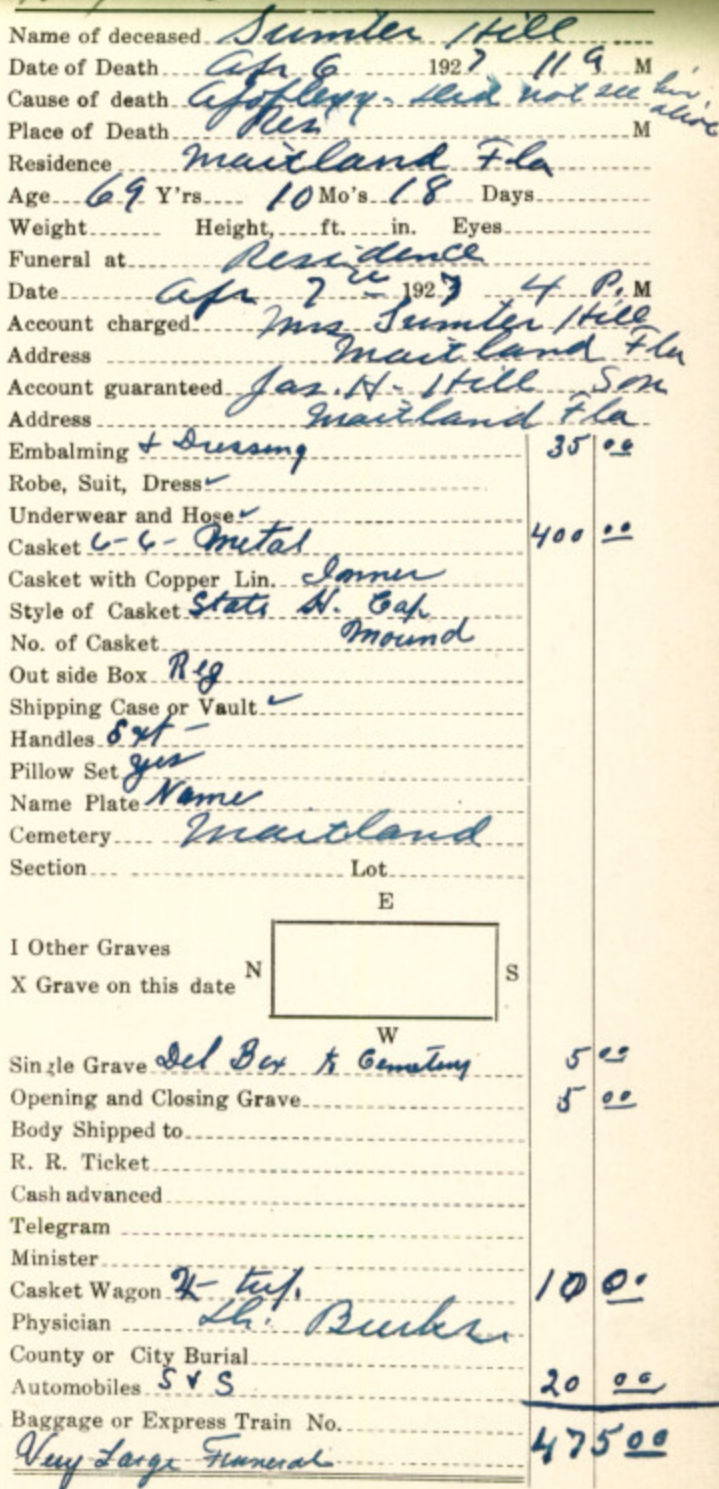 Name of deceased Sumter Hill
Date of Death Apr 6 1927 11 a M
Cause of death Apoplexy - did not see him alive
Place of Death Res M
Residence Maitland Fla
Age 69 Y'rs 10 Mo's 18 Days
Weight Height, ft. in. Eyes
Funeral at Residence
Date Apr 7 th 1927 4 P. M
Account charged Mrs Sumter Hill
Address Maitland Fla
Account guaranteed Jas. H. Hill Son
Address Maitland Fla
Embalming + Dressing 35 00
Robe, Suit, Dress ✓
Underwear and Hose ✓
Casket 6-6- Metal 400 00
Casket with Copper Lin. Inner
Style of Casket State H. Cap
No. of Casket Mound
Out side Box Reg
Shipping Case or Vault ✓
Handles Ext -
Pillow Set yes
Name Plate Name
Cemetery Maitland
Section Lot
E
I Other Graves
N S
X Grave on this date
W
Single Grave Del Box to Cemetery 5 00
Opening and Closing Grave 5 00
Body Shipped to
R. R. Ticket
Cash advanced
Telegram
Minister
Casket Wagon 10 00
Physician
County or City Burial
Automobiles S & S 20 00
Baggage or Express Train No.
Very Large Funeral 475 00